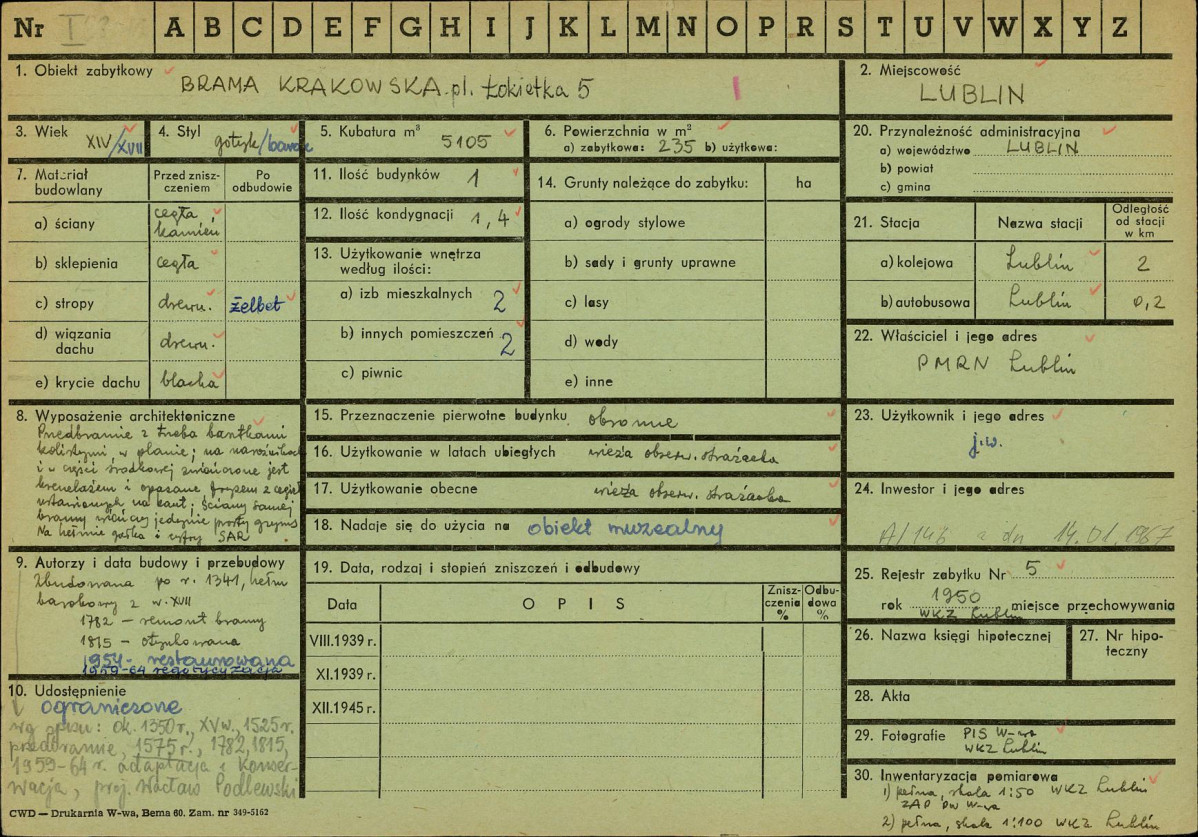 Nr I A B C D E F G H I J K L M N O P R S T U V W X Y Z
1. Obiekt zabytkowy BRAMA KRAKOWSKA pl. Łokietka 5
2. Miejscowość
LUBLIN
3. Wiek XIV/XVII
4. Styl gotyk/barok
5. Kubatura m³ 5105
6. Powierzchnia w m²
a) zabytkowa: 235 b) użytkowa:
20. Przynależność administracyjna
a) województwo LUBLIN
b) powiat
c) gmina
7. Materiał budowlany
Przed zniszczeniem
Po odbudowie
a) ściany cegła kamień
b) sklepienia cegła
c) stropy drewn. żelbet
d) wiązania dachu drewn.
e) krycie dachu blacha
11. Ilość budynków 1
12. Ilość kondygnacji 1, 4
13. Użytkowanie wnętrza
według ilości:
a) izb mieszkalnych 2
b) innych pomieszczeń 2
c) piwnic
14. Grunty należące do zabytku: ha
a) ogrody stylowe
b) sady i grunty uprawne
c) lasy
d) wody
e) inne
21. Stacja Nazwa stacji Odległość od stacji w km
a) kolejowa Lublin 2
b) autobusowa Lublin 0,2
22. Właściciel i jego adres
PMRN Lublin
8. Wyposażenie architektoniczne
Przedbramie z trzeba basztkami
kolistymi w planie; na narożnikach
i w części środkowej zwieńczone jest
krenelażem i opasane fryzem z cegieł
ustawionych na kant; ściany samej
bramy wieńczy jedynie prosty gzyms
Na hełmie gałka i cyfry SAR
15. Przeznaczenie pierwotne budynku obronne
16. Użytkowanie w latach ubiegłych wieża obserw. strażacka
17. Użytkowanie obecne wieża obserw. strażacka
18. Nadaje się do użycia na obiekt muzealny
23. Użytkownik i jego adres
j.w.
24. Inwestor i jego adres
A/146 z dn 14.01.1967
9. Autorzy i data budowy i przebudowy
Zbudowana po r. 1341, hełm
barokowy z w. XVII
1782 – remont bramy
1815 – otynkowana
1954 – restaurowana
1959-64 regotycyzacja
10. Udostępnienie
ograniczone
wg spisu: ok. 1350 r., XV w., 1525 r.
przedbramie, 1575 r., 1782, 1815,
1959-64 r. adaptacja i konser-
wacja, proj. Wacław Podlewski
19. Data, rodzaj i stopień zniszczeń i odbudowy
Data OPIS Zniszczenie % Odbudowa %
VIII.1939 r.
XI.1939 r.
XII.1945 r.
25. Rejestr zabytku Nr 5
rok 1950 miejsce przechowywania
WKZ Lublin
26. Nazwa księgi hipotecznej
27. Nr hipoteczny
28. Akta
29. Fotografie PIS W-wa
WKZ Lublin
30. Inwentaryzacja pomiarowa
1) pełna, skala 1:50 WKZ Lublin
ZAP PW W-wa
2) pełna, skala 1:100 WKZ Lublin
CWD — Drukarnia W-wa, Bema 60. Zam. nr 349-5162